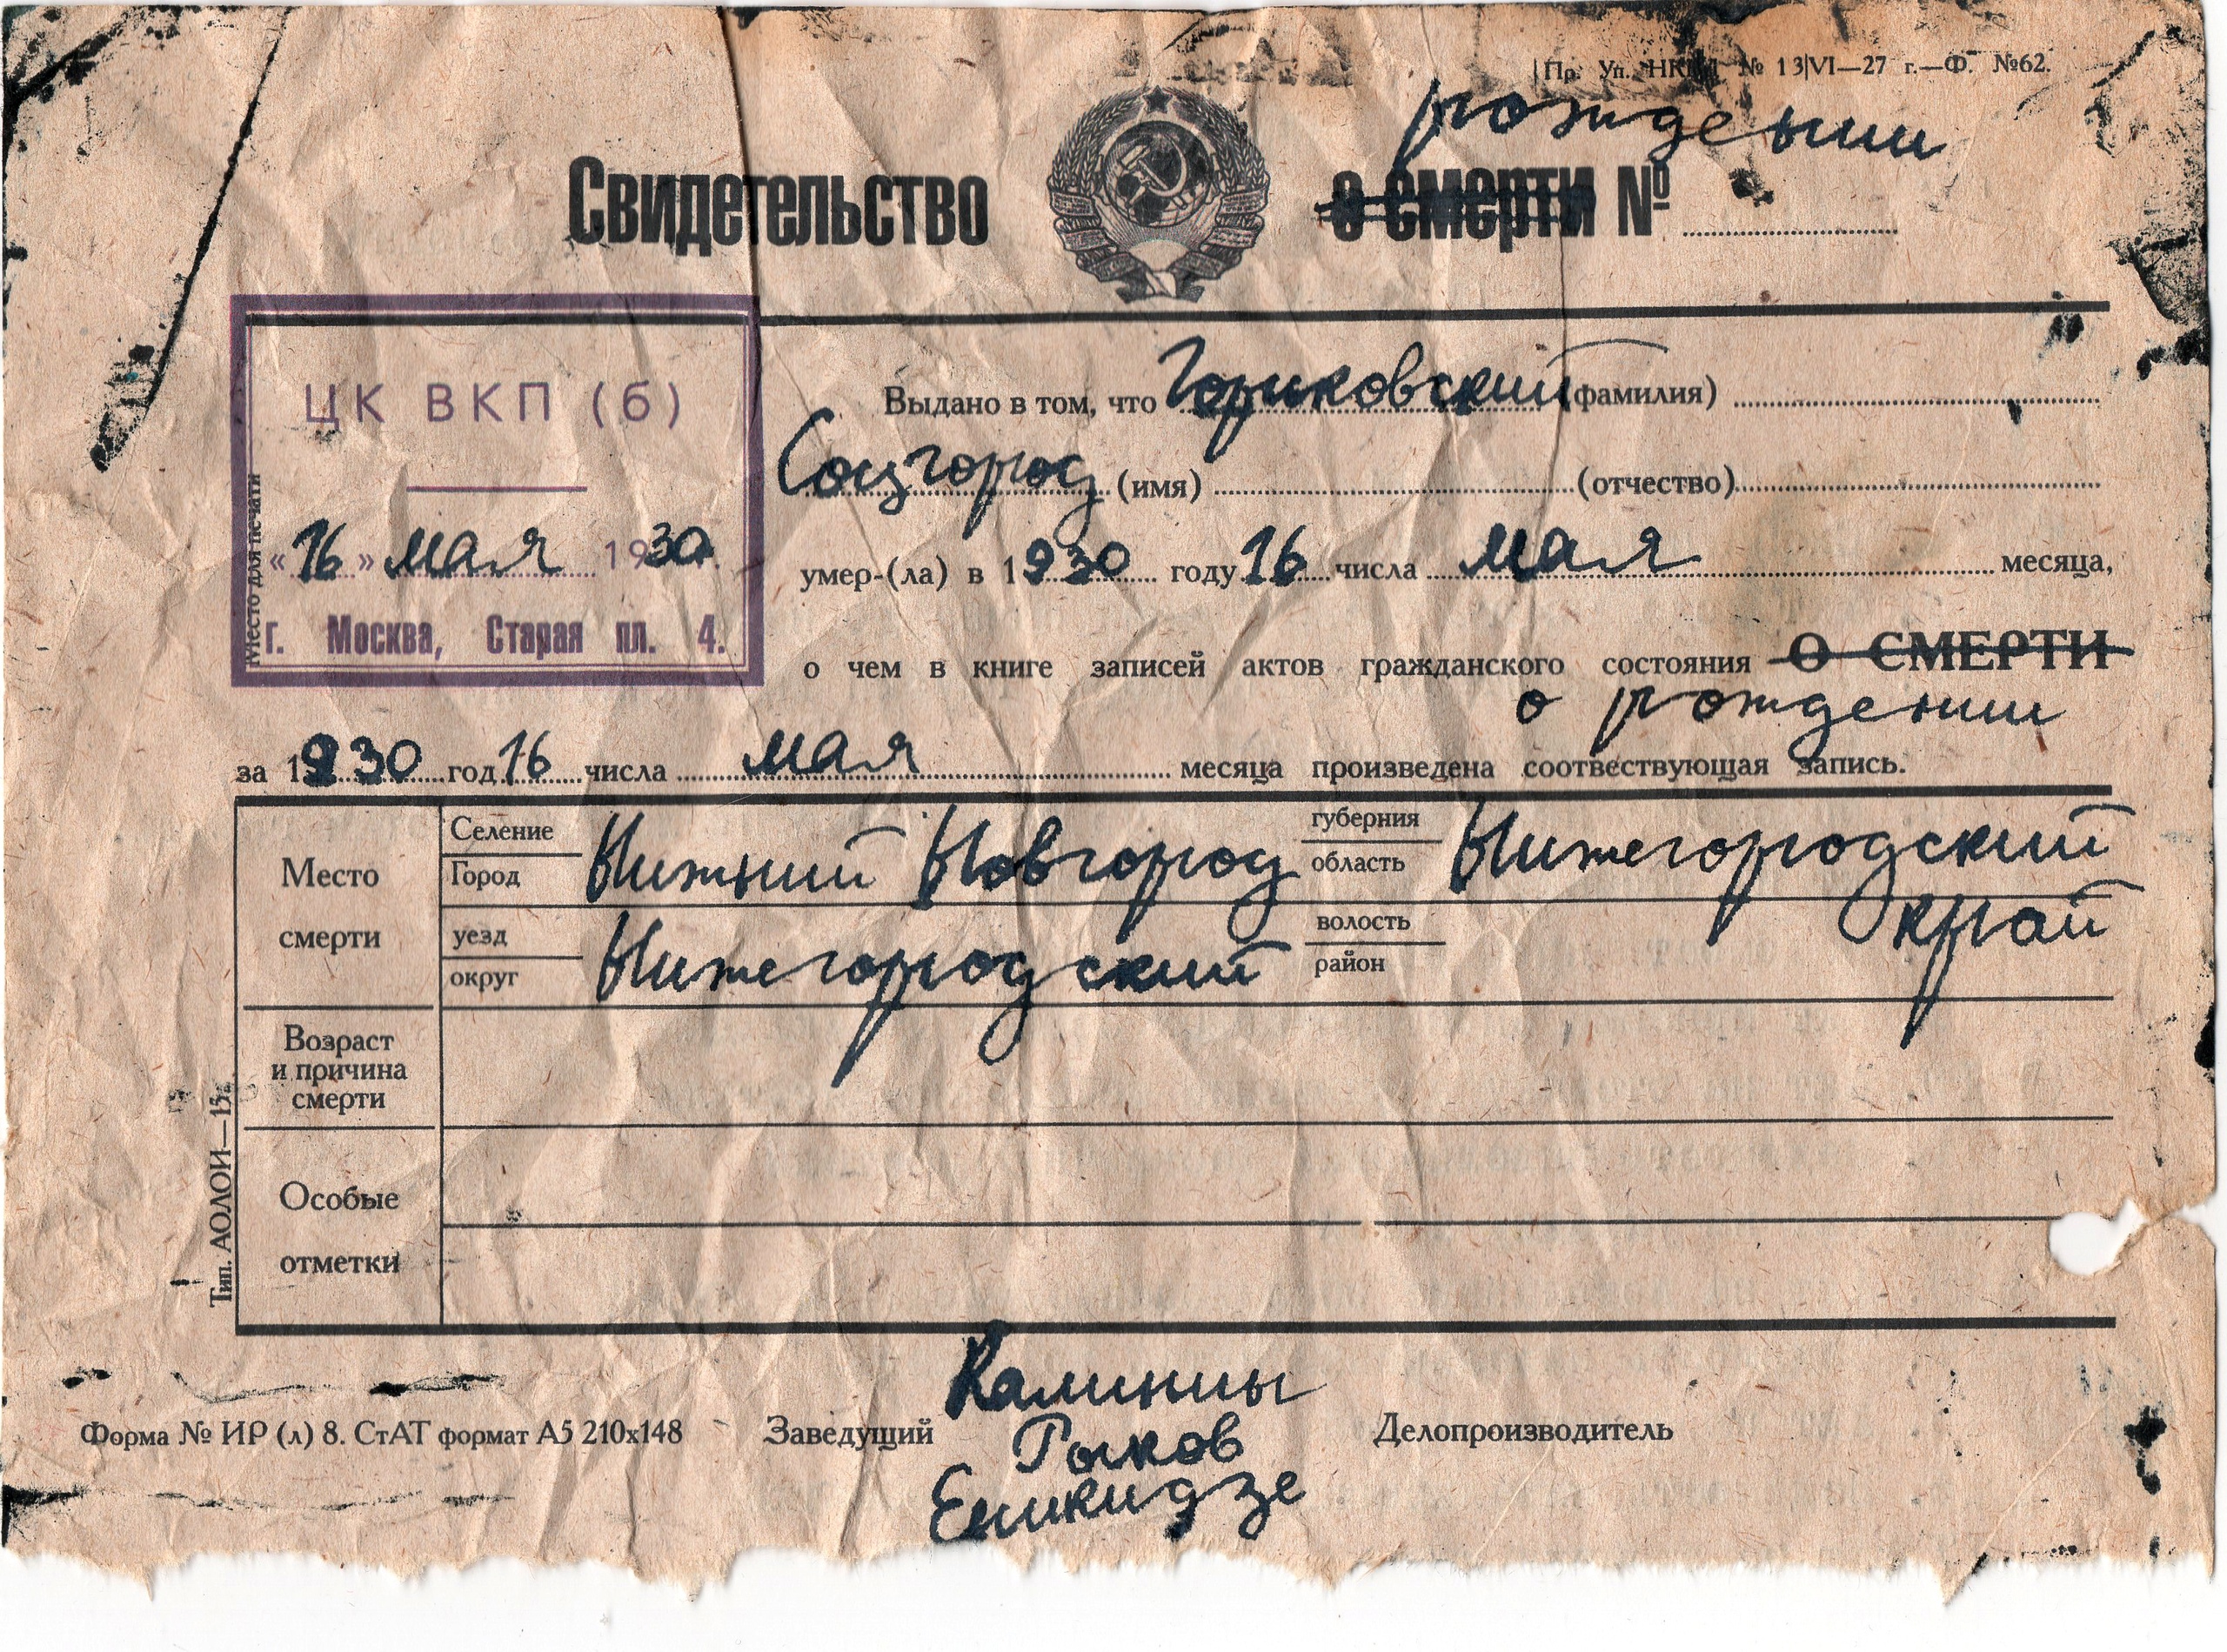 Пр. Уп. НКВД № 13|VI—27 г.—Ф. №62.
рождении
Свидетельство о смерти №
Выдано в том, что Горьковский (фамилия)
Соцгород (имя) (отчество)
умер-(ла) в 1930 году 16 числа мая месяца,
о чем в книге записей актов гражданского состояния О СМЕРТИ
о рождении
за 1930 год 16 числа мая месяца произведена соотвествующая запись.
Место для печати
ЦК ВКП (б)
«16» мая 1930.
г. Москва, Старая пл. 4.
Место смерти
Селение
Город
Нижний Новгород
губерния
область
Нижегородский край
уезд
округ
Нижегородский
волость
район
Возраст
и причина
смерти
Особые
отметки
Тип. АОЛОИ—15.
Калинин
Форма № ИР (л) 8. СтАТ формат А5 210х148 Заведущий Рыков Делопроизводитель
Еникидзе